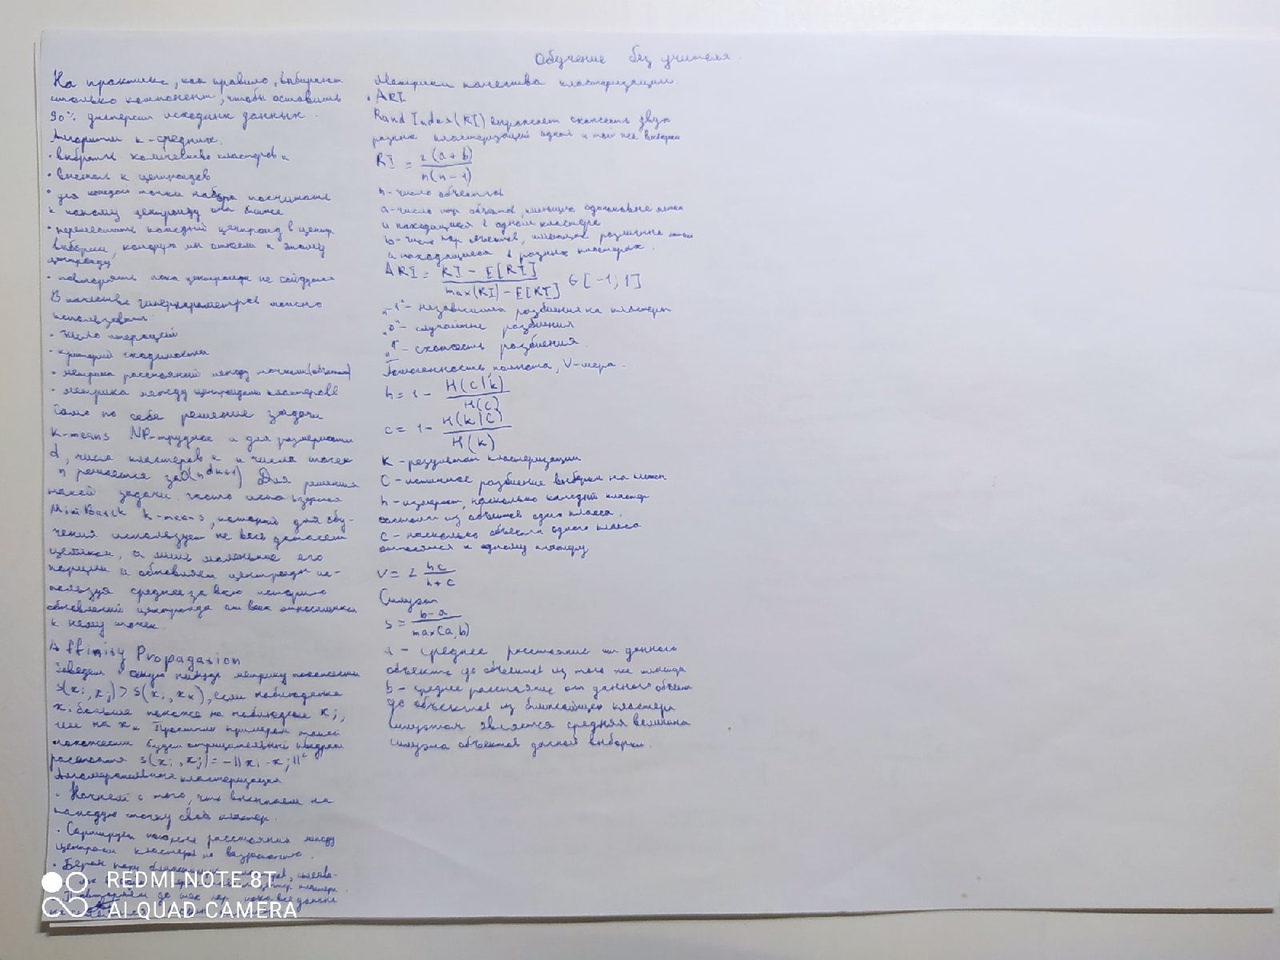 Обучение без учителя.
На практике, как правило, выбирают
столько компонент, чтобы оставить
90% дисперсии исходных данных.
Алгоритм k-средних.
• выбрать количество кластеров k
• k центроидов
• для каждой точки набора посчитать
к какому центроиду она ближе
• переместить каждый центроид в центр
выборки, которую мы отнесли к этому
центроиду
• повторять пока центроиды не сойдутся
В качестве гиперпараметров можно
использовать:
• число итераций
• критерий сходимости
• метрика расстояний между точками (объектами)
• метрика между центроидами кластеров
Само по себе решение задачи
k-means NP-трудное и для размерности
d, числа кластеров k и числа точек
n решается за O(n^dk+1) Для решения
такой задачи часто используется
MiniBatch k-means, который для обу-
чения использует не весь датасет
целиком, а лишь маленькие его
порции и обновляет центроиды ис-
пользуя среднее за всю историю
обновлений центроида от всех относящихся
к нему точек.
Affinity Propagation
похожести
s(xi, xj) > s(xi, xk), если наблюдение
xi больше похоже на наблюдение xj,
чем на xk. Простым примером такой
похожести будет отрицательный квадрат
расстояния s(xi, xj) = -||xi - xj||²
Агломеративная кластеризация
• Начнем с того, что высыпаем на
каждую точку свой кластер.
• Сортируем попарные расстояния между
центрами кластеров по возрастанию.
• Берем пару ближайших кластеров,
• Повторяем до тех пор, пока все данные
Метрики качества кластеризации.
• ARI
Rand Index (RI) выражает схожесть двух
разных кластеризаций одной и той же выборки
RI = 2(a+b) / n(n-1)
n - число объектов
a - число пар объектов, имеющих одинаковые метки
и находящихся в одном кластере
b - число пар объектов, имеющих различные метки
и находящиеся в разных кластерах.
ARI = RI - E[RI] / max(RI) - E[RI] ∈ [-1, 1]
"-1" - независимые разбиения на кластеры
"0" - случайные разбиения
"1" - схожесть разбиения.
Гомогенность, полнота, V-мера.
h = 1 - H(C|k) / H(C)
c = 1 - H(k|C) / H(k)
K - результат кластеризации
C - истинное разбиение выборки на классы
h - измеряет, насколько каждый кластер
состоит из объектов одного класса.
C - насколько объекты одного класса
относятся к одному кластеру
V = 2 hc / h+c
Силуэт
s = b-a / max(a,b)
a - среднее расстояние от данного
объекта до объектов из того же кластера
b - среднее расстояние от данного объекта
до объектов из ближайшего кластера
Силуэтом является средняя величина
силуэта объектов данной выборки.
REDMI NOTE 8T
AI QUAD CAMERA